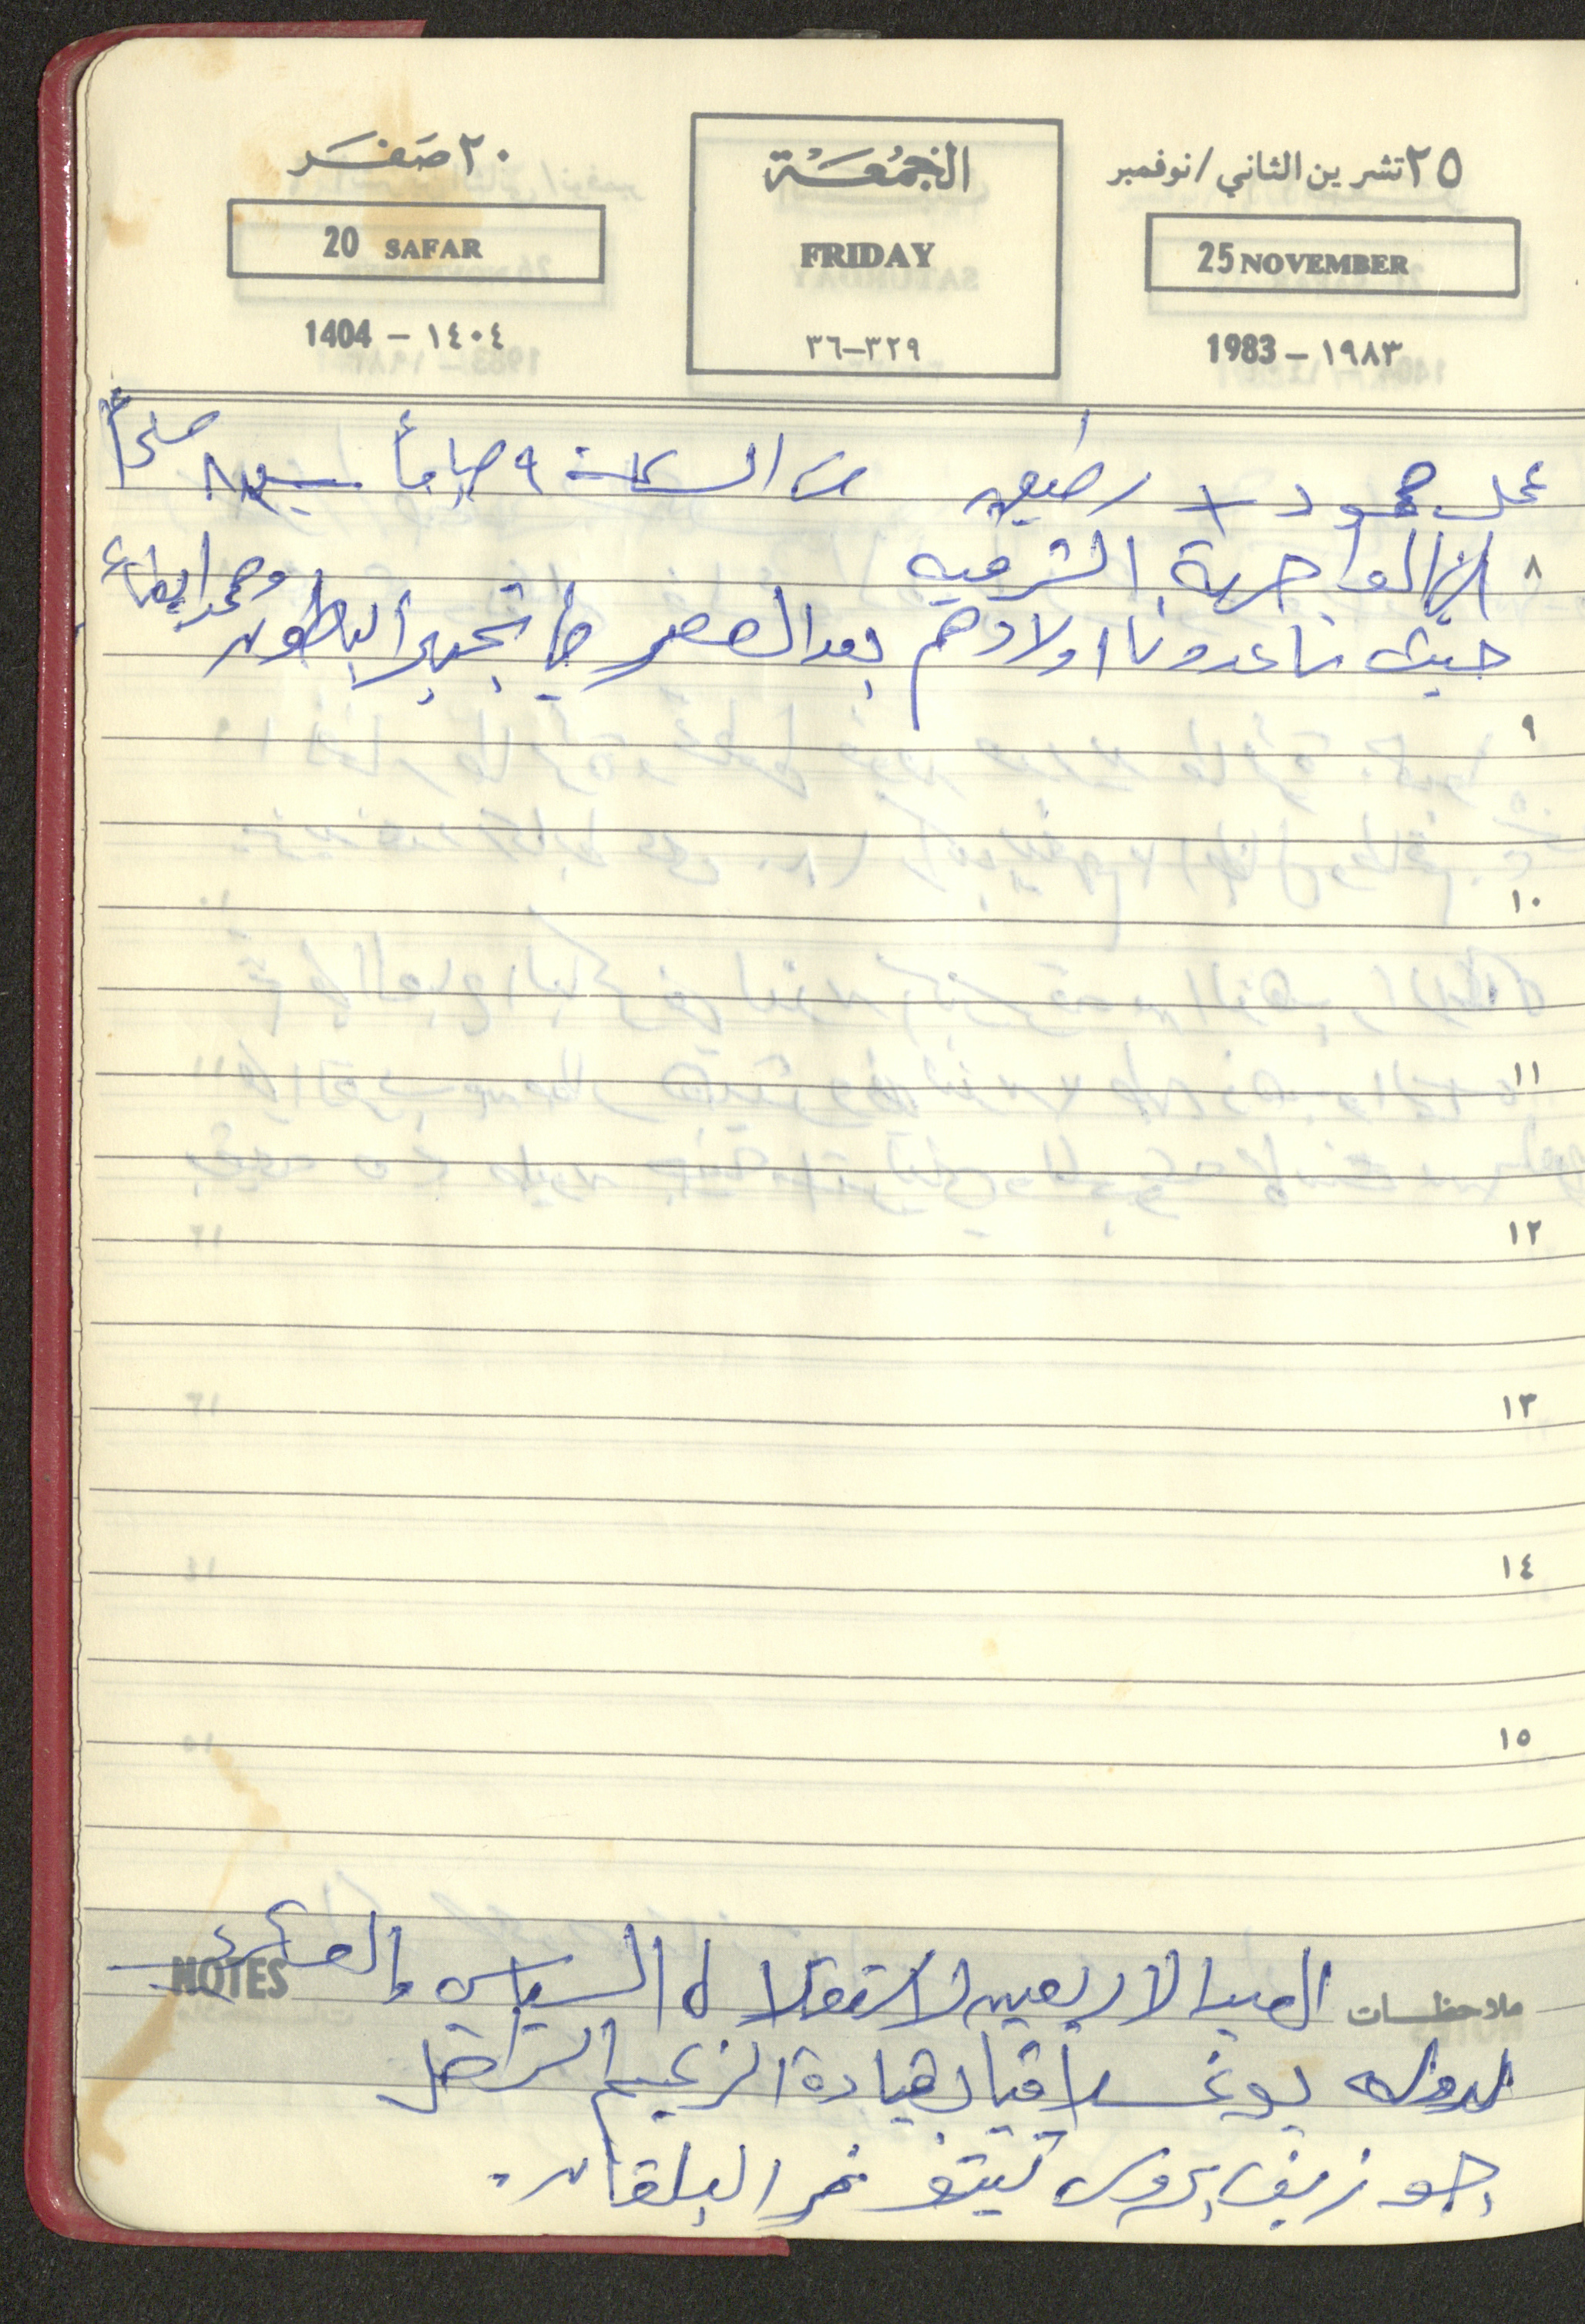 ٢٥ تشرين الثاني / نوفمبر
الجمعة
٢٠ صفر
25 NOVEMBER
FRIDAY
20 SAFAR
1983 - ١٩٨٣
٣٦-٣٢٩
1404 - ١٤٠٤
عمل حمود + رفيق من الساعة ٩ صباحاً
٨
الواجهة الشرقيه
حيث ساعدونا اولادهم بعد العصر في تجبير الباطون ومحمد ايضاً
٩
١٠
١١
١٢
١٣
١٤
١٥
ملاحظات NOTES
العيد الاربعين لاستقلال السياسي والعسكري
لدولة يوغسلافيا بقيادة الزعيم الراحل
جوزيف بروس تيتو نمر البلقان .